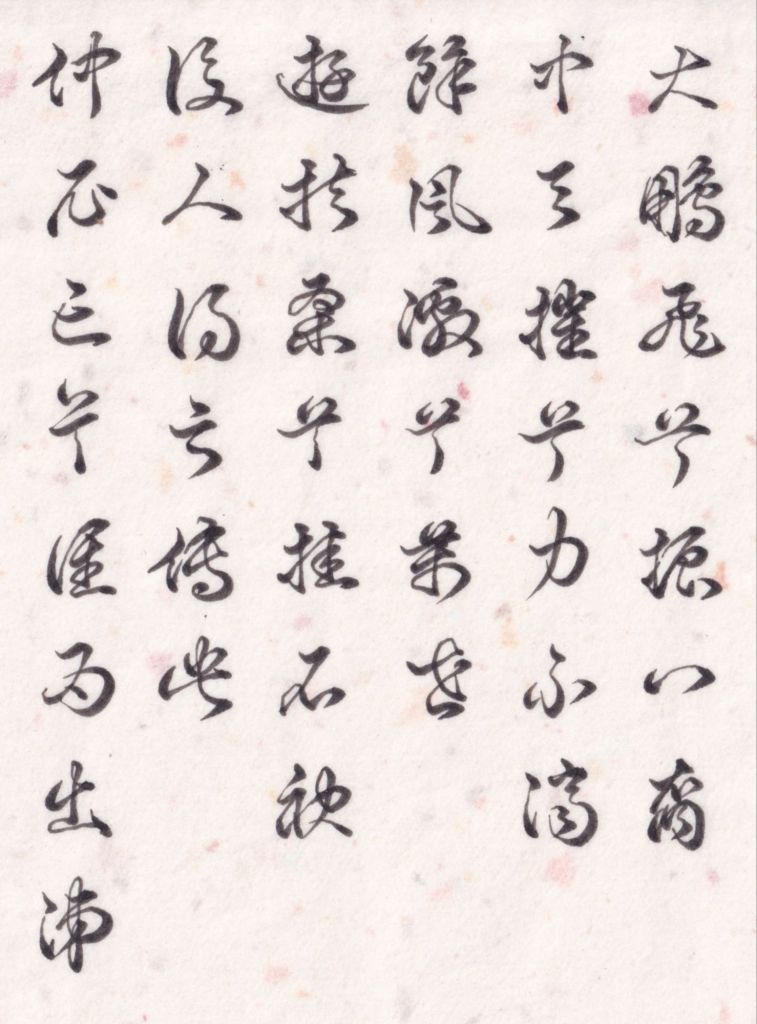 大鵬飛兮振八裔
中天摧兮力不濟
餘風激兮萬世
遊扶桑兮挂石袂
後人得之傳此
仲尼亡兮誰為出涕